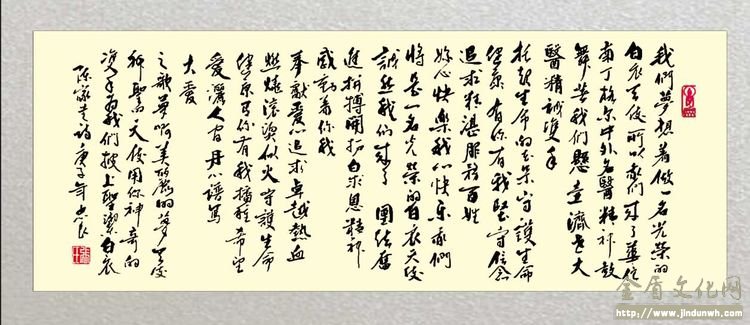 我們夢想着做一名光榮的
白衣天使所以我們來了華佗
南丁格尔中外名醫精神鼓
舞着我們懸壺濟世大
醫精誠雙手
托起生命的守護生命
健康有你有我堅守信念
追求精湛服務百姓
您心快樂我心快乐我們
將是一名光榮的白衣天使
誠然我們來了團結奮
進拼搏開拓白求恩精神
感動着你我
奉獻愛心追求卓越熱血
燃燒滾燙似火守護生命
健康有你有我播種希望
愛灑人间丹心譜寫
大愛
之歌夢啊美麗的夢天使
神聖的天使用你神奇的
雙手為我們披上聖潔白衣
陈家詩庚子年忠良
金盾文化网
http://www.jindunwh.com